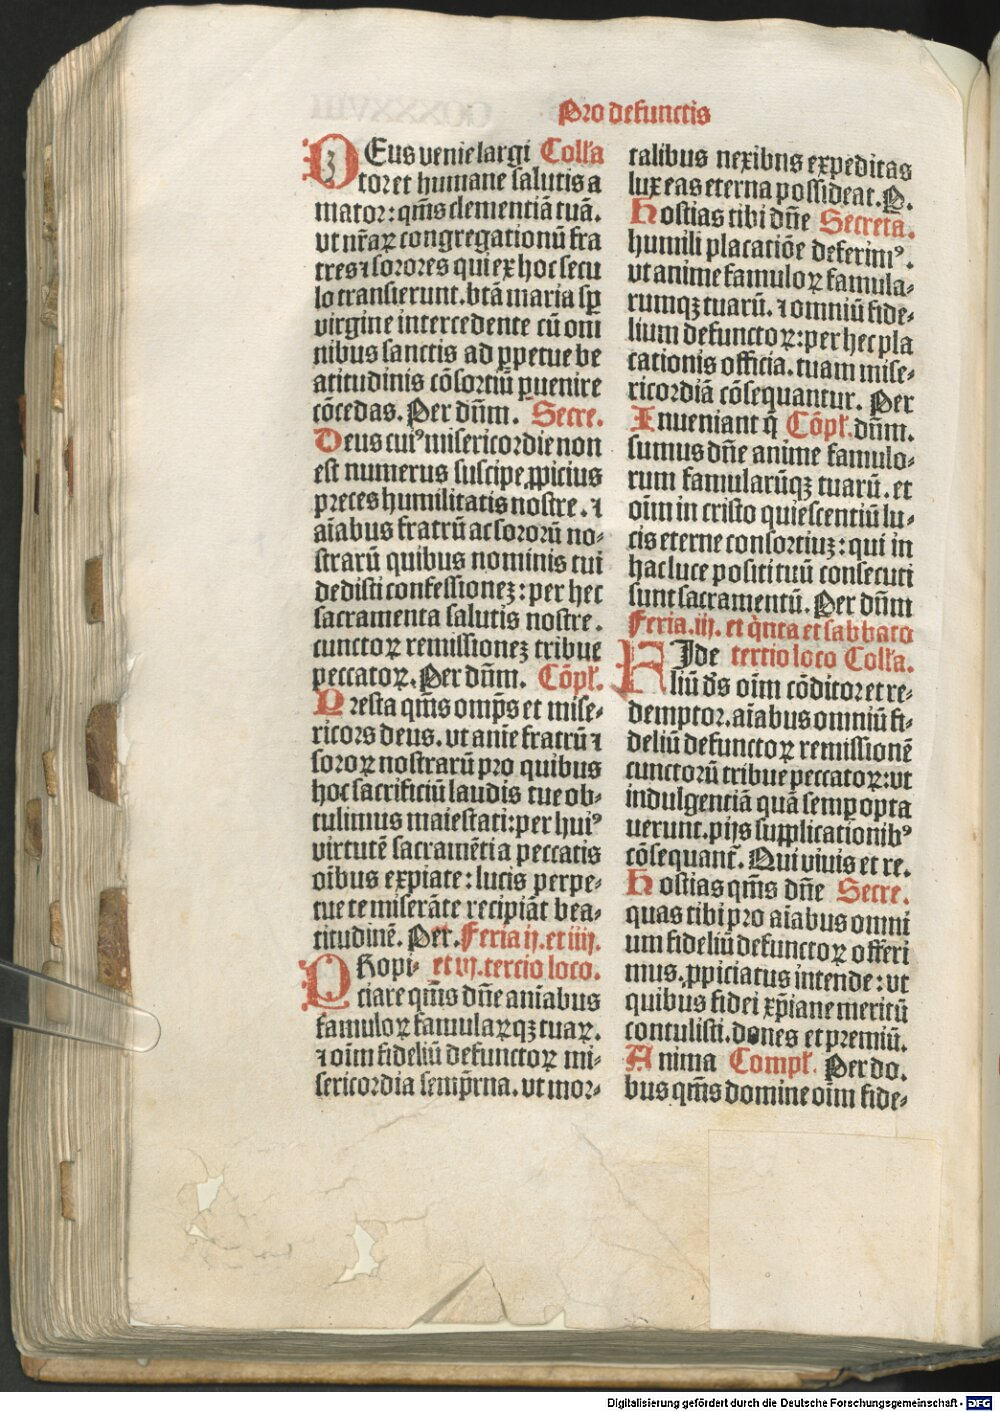 Pro defunctis
DEus venie largi Coll'a
tor et humane salutis a
mator: qm̄s clementiā tuā.
vt nr̄aꝝ congregationū fra
tres ⁊ sorores qui ex hoc secu
lo transierunt. btā maria sp̄
virgine intercedente cū om
nibus sanctis ad ꝑpetue be
atitudinis cōsortiū ꝑuenire
cōcedas. Per dn̄m. Secre.
Deus cuiꝰ misericordie non
est numerus suscipe ꝓpicius
preces humilitatis nostre. ⁊
aīabus fratrū ac sororū no⸗
strarū quibus nominis tui
dedisti confessioneꝫ: per hec
sacramenta salutis nostre.
cunctoꝝ remissioneꝫ tribue
peccatoꝝ. Per dn̄m. Cōpl'.
Presta qm̄s omp̄s et mise⸗
ricors deus. vt anīe fratrū ⁊
soroꝝ nostrarū pro quibus
hoc sacrificiū laudis tue ob⸗
tulimus maiestati: per huiꝰ
virtutē sacramēti a peccatis
oībus expiate: lucis perpe⸗
tue te miserāte recipiāt bea⸗
titudinē. Per. Feria ij. et iiij.
PRopi⸗ et vj. tercio loco.
ciare qm̄s dn̄e anīabus
famuloꝝ famulaꝝqꝫ tuaꝝ.
⁊ oīm fideliū defunctoꝝ mi⸗
sericordia semp̄rna. vt mor⸗
talibus nexibus expeditas
lux eas eterna possideat. P.
Hostias tibi dn̄e Secreta.
humili placatiōe deferimꝰ.
vt anime famuloꝝ famula⸗
rumqꝫ tuarū. ⁊ omniū fide⸗
lium defunctoꝝ: per hec pla
cationis officia. tuam mise⸗
ricordiā cōsequantur. Per
Inueniant q̄ Cōpl'. dn̄m.
sumus dn̄e anime famulo⸗
rum famularūqꝫ tuarū. et
oīm in cristo quiescentiū lu⸗
cis eterne consortiuꝫ: qui in
hac luce positi tuū consecuti
sunt sacramentū. Per dn̄m
Feria. iij. et q̇nta et sabbato
FIde tertio loco Coll'a.
liū d̄s oīm cōditor et re⸗
demptor. aīabus omniū fi⸗
deliū defunctoꝝ remissionē
cunctorū tribue peccatoꝝ: vt
indulgentiā quā semꝑ opta
uerunt. pijs supplicationibꝰ
cōsequant̄. Qui viuis et re.
Hostias qm̄s dn̄e Secre.
quas tibi pro aīabus omni
um fideliū defunctoꝝ offeri
mus. ꝓpiciatus intende: vt
quibus fidei xp̄iane meritū
contulisti. dones et premiū.
Anima Compl'. Per do.
bus qm̄s domine oīm fide⸗
Digitalisierung gefördert durch die Deutsche Forschungsgemeinschaft - DFG